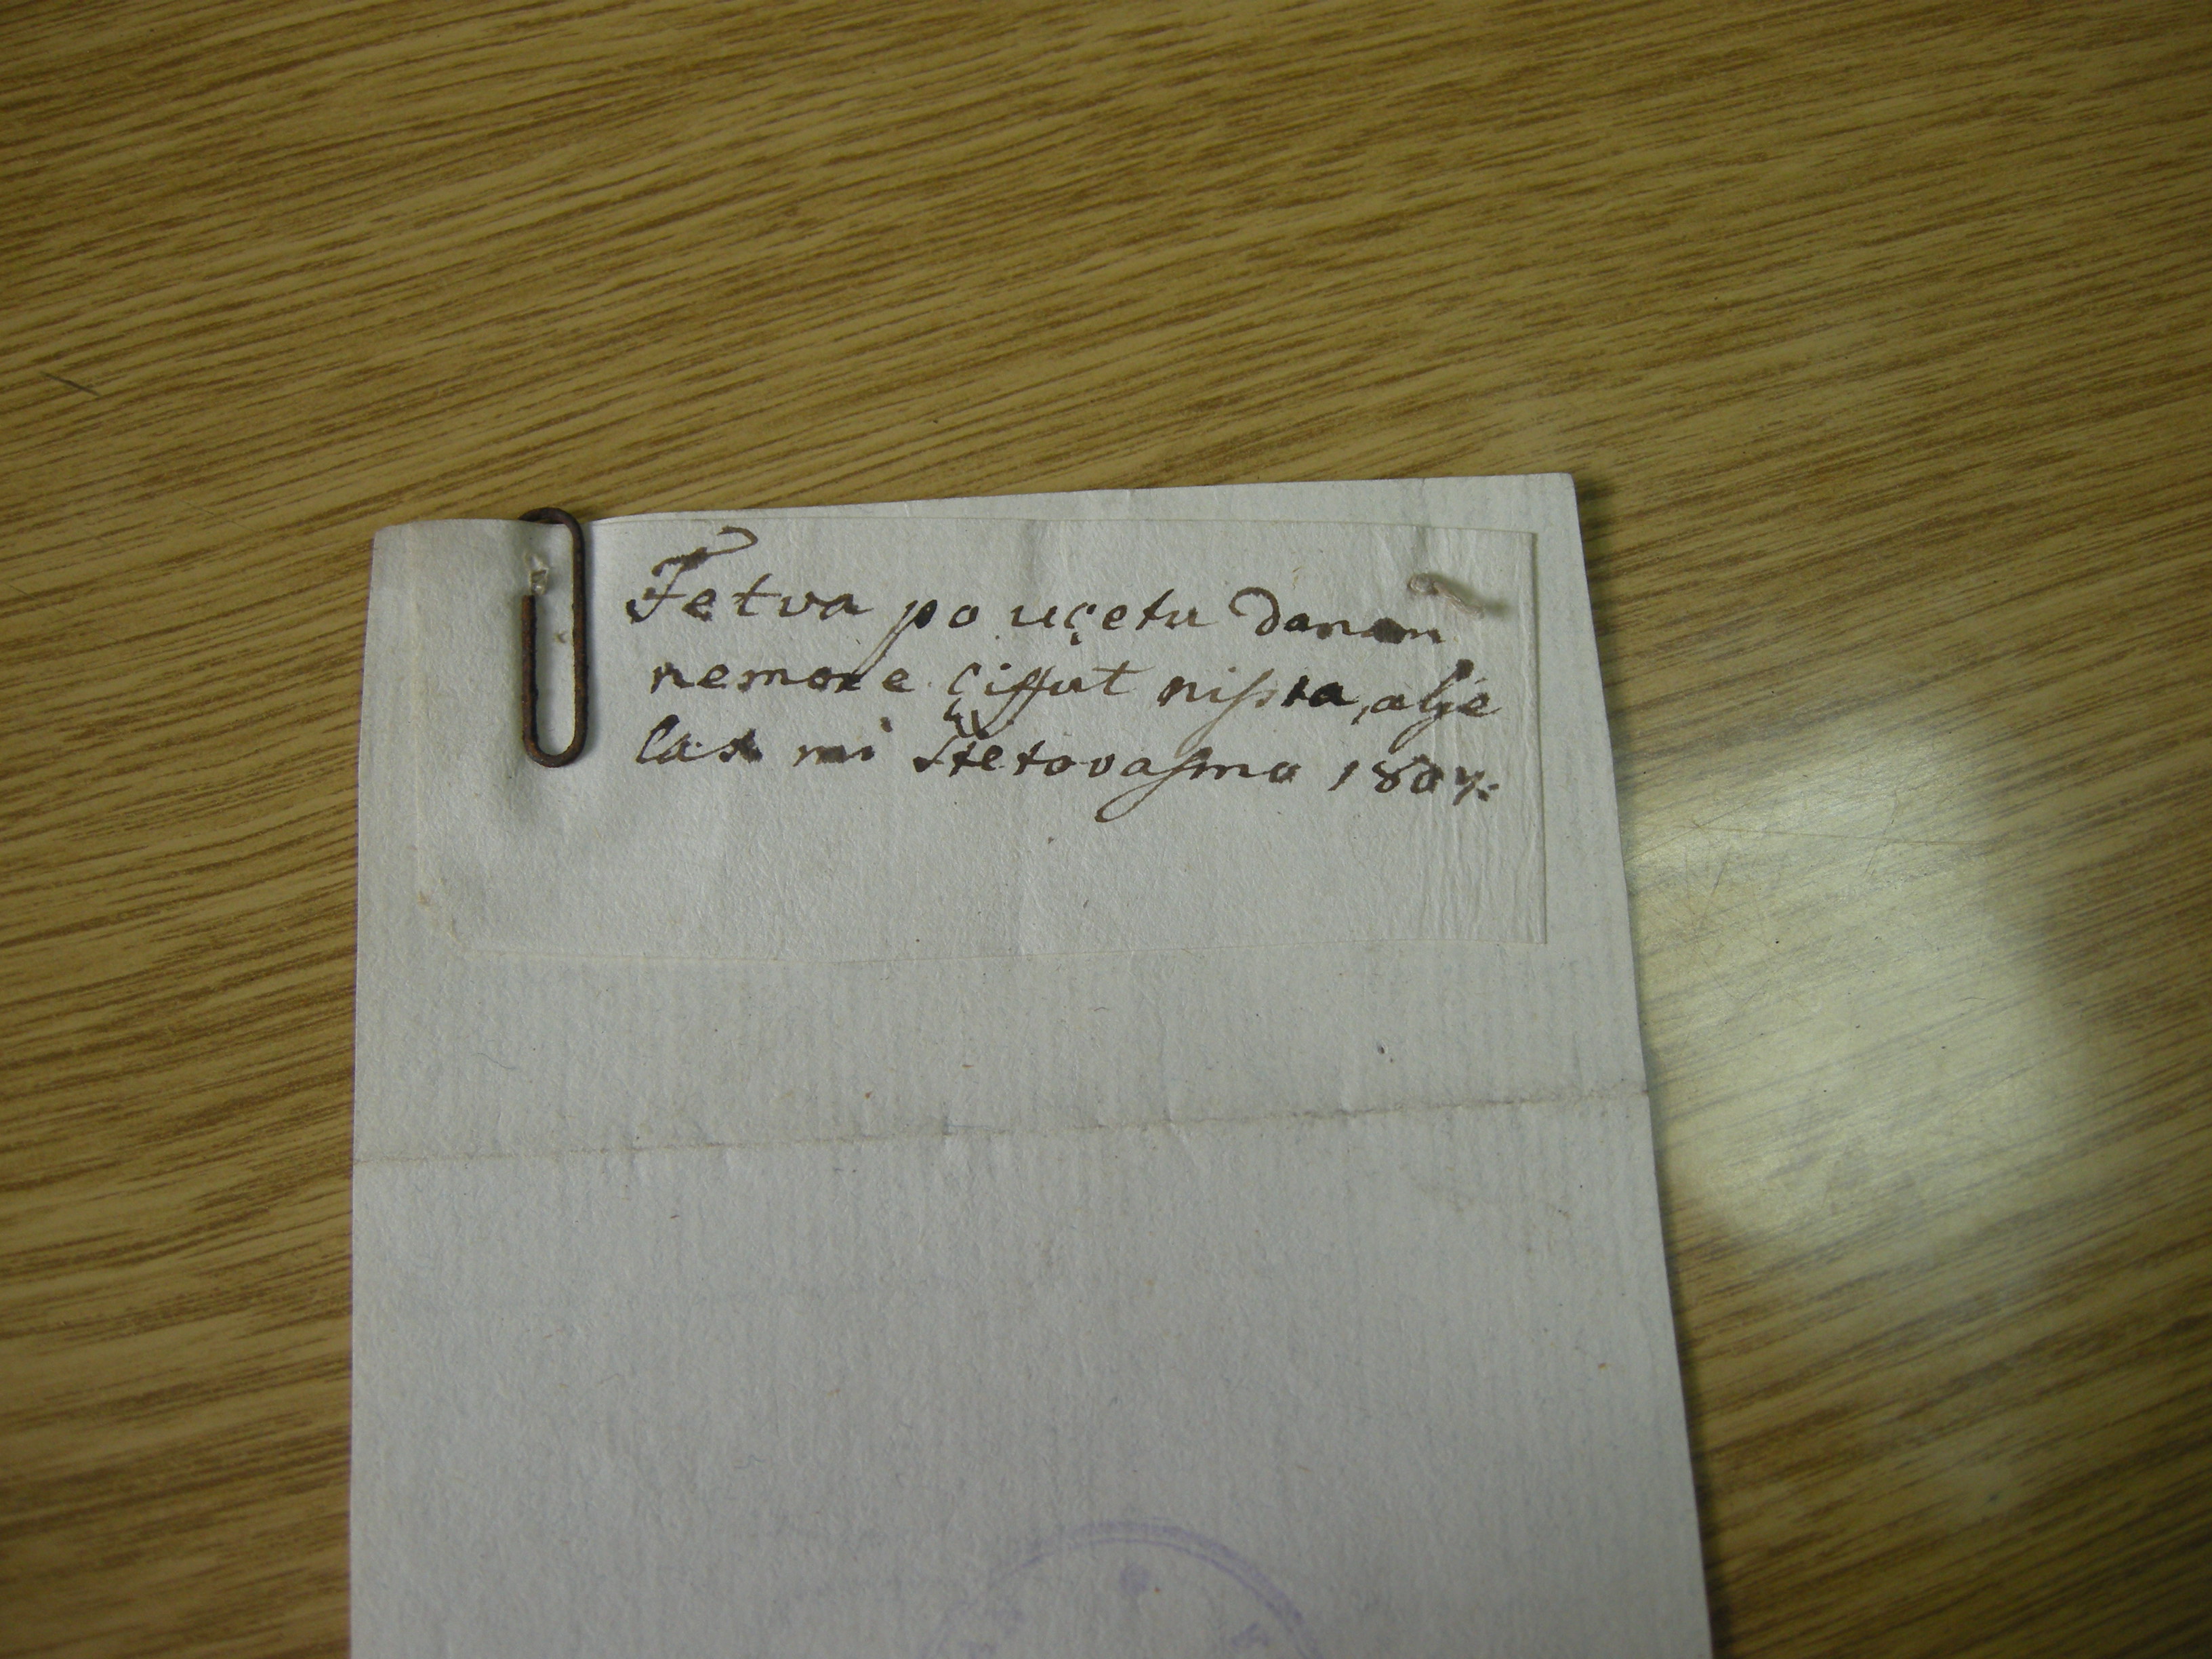 Fetva po uçetu danam
nemore çiffut niʃsta, alje
laʃt mi ſtetovaʃmo 1807: